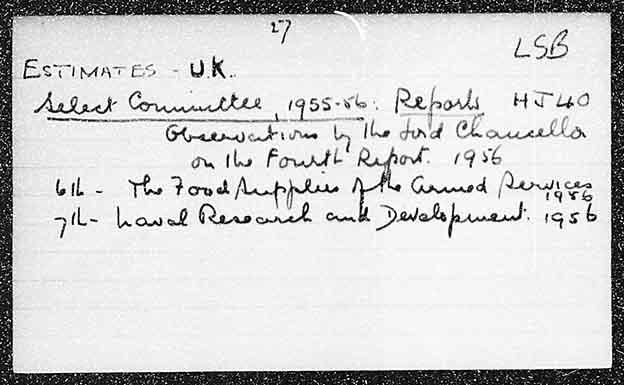 27
LSB
ESTIMATES - U.K.
Select Committee, 1955-56. Reports HJ40
Observations by the Lord Chancellor
on the Fourth Report. 1956
6th - The Food Supplies of the Armed Services
1956
7th - Naval Research and Development. 1956